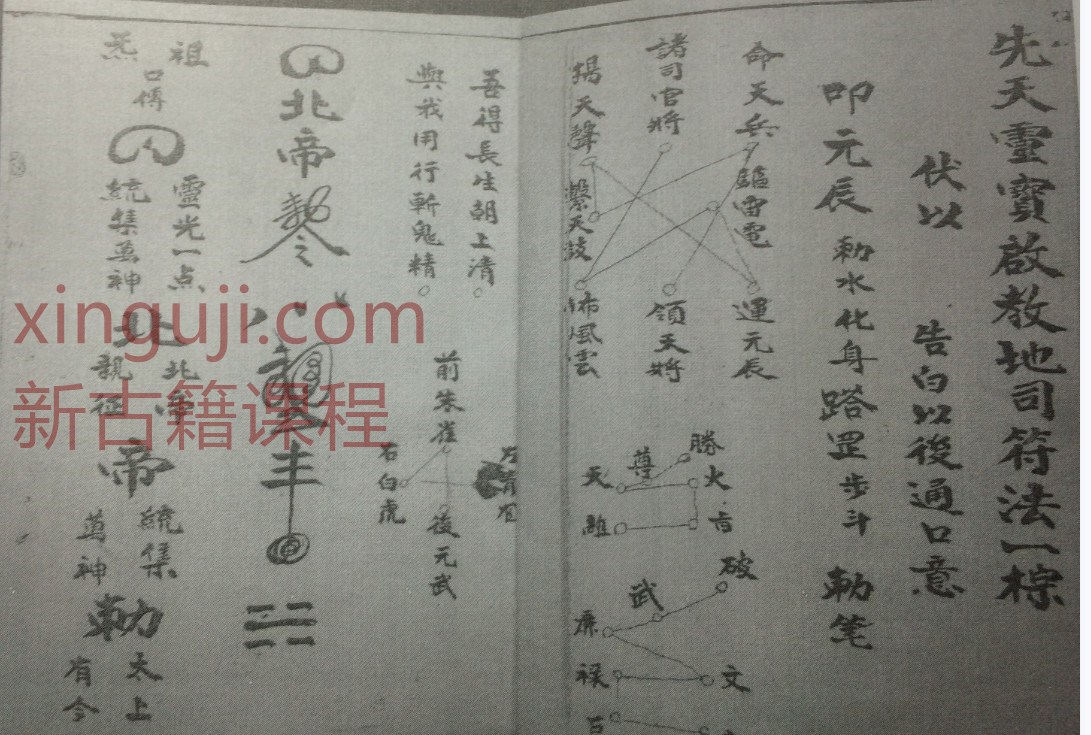 先天靈寶啟教地司符法一棕
伏以 告白以後通口意
叩元辰 勑水化身 踏罡步斗 勑笔
命天兵
驅雷電
運元辰
諸司官將
領天將
揚天聲
繫天鼓
布風雲
勝
尊
天
火
離
破
武
廉
文
禄
吾得長生朝上清
與我用行斬鬼精
前朱雀
後元武
右白虎
北帝勅令
丰
祖
炁
口傳
靈光一点
統集萬神
北
北帝
親征
帝
統集
萬神
勑
太上
有令
xinguji.com
新古籍课程